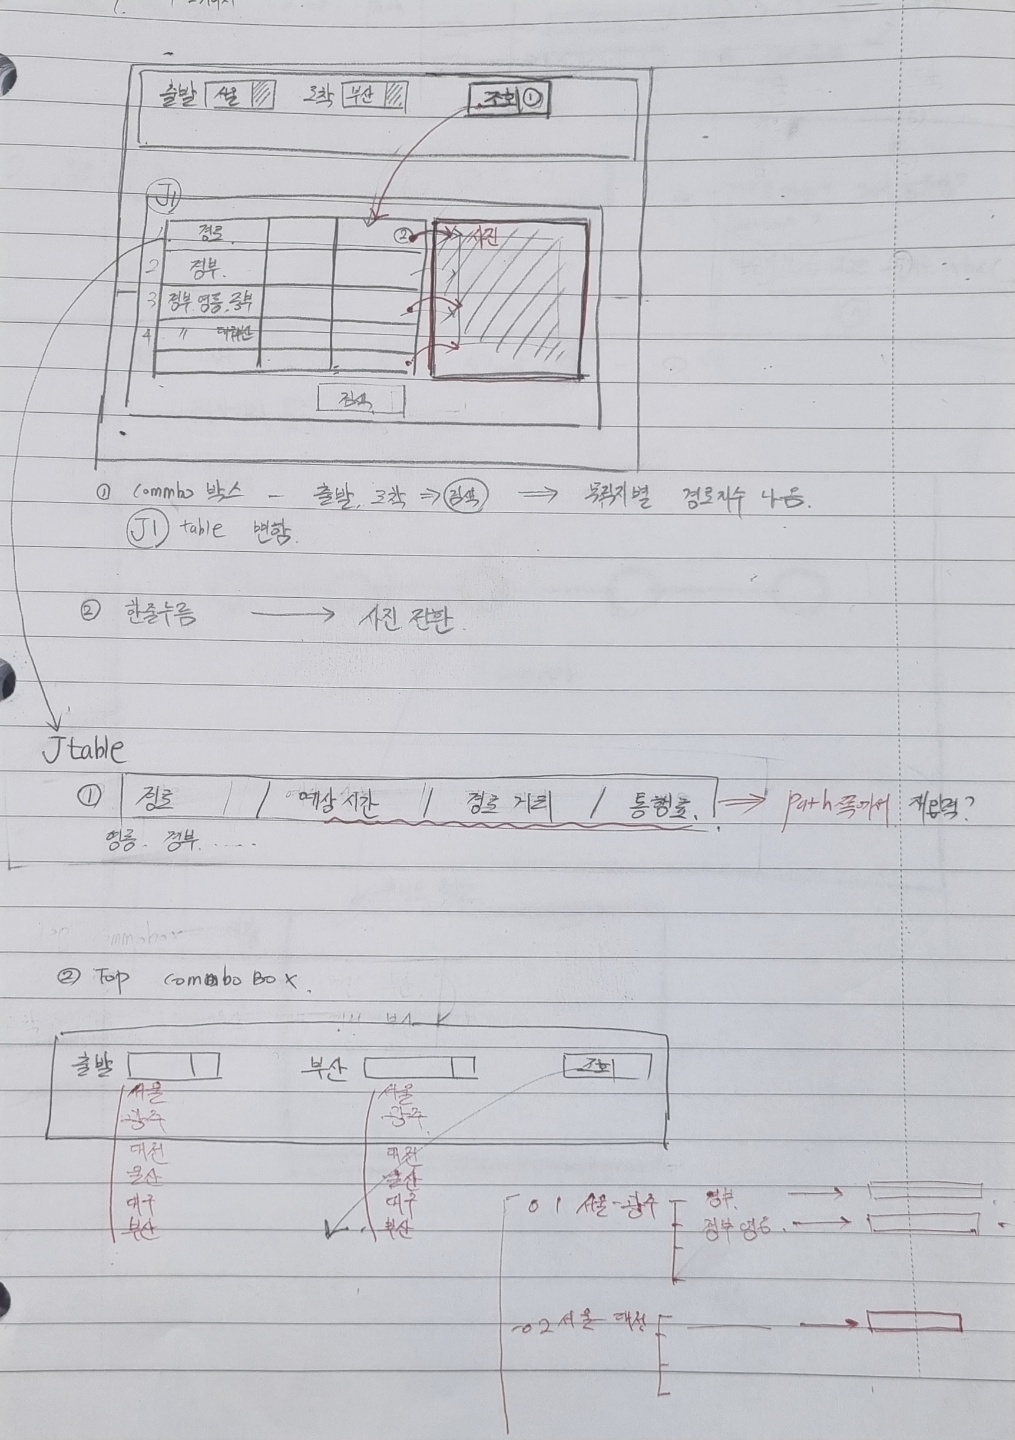 출발 서울 도착 부산 조회 ①
J1
1 경로 ② 사진
2 경부.
3 경부. 영동. 중부
4 〃
검색
① Commbo 박스 - 출발, 도착 ⇒ 검색 ⇒ 목적지별 경로지수 나옴.
J1 table 변함.
② 한줄누름 → 사진 전환.
Jtable
① 경로 / 예상시간 / 경로 거리 / 통행료. ⇒ path쪽에서 재입력?
영동. 경부. .....
② Top combo Box.
출발 부산 조회
서울 서울
광주 광주
대전 대전
울산 울산
대구 대구
부산 부산
01 서울-광주 경부. →
경부 영동. →
02 서울 대전 →